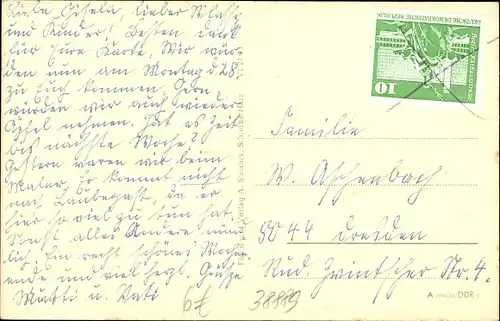 Liebe Gisela, lieber Klaus
und Kinder! Besten Dank
für Eure Karte. Wir wür-
den nun am Montag d. 28.
zu Euch kommen. Gern
würden wir auch wieder
Äpfel nehmen. Hat es Zeit
bis nächste Woche?
Gestern waren wir beim
Maler. Er kommt nicht
nach Laubegast, da er
hier so viel zu tun hat.
Sonst alles Andere münd-
lich. Ein recht schönes Wochen-
ende und viel herzl. Grüße
Mutti u. Vati
DEUTSCHE DEMOKRATISCHE REPUBLIK
10
Familie
W. Aschenbach
8044 Dresden
Rud. Zwintscher Str. 4.
DDR
38889